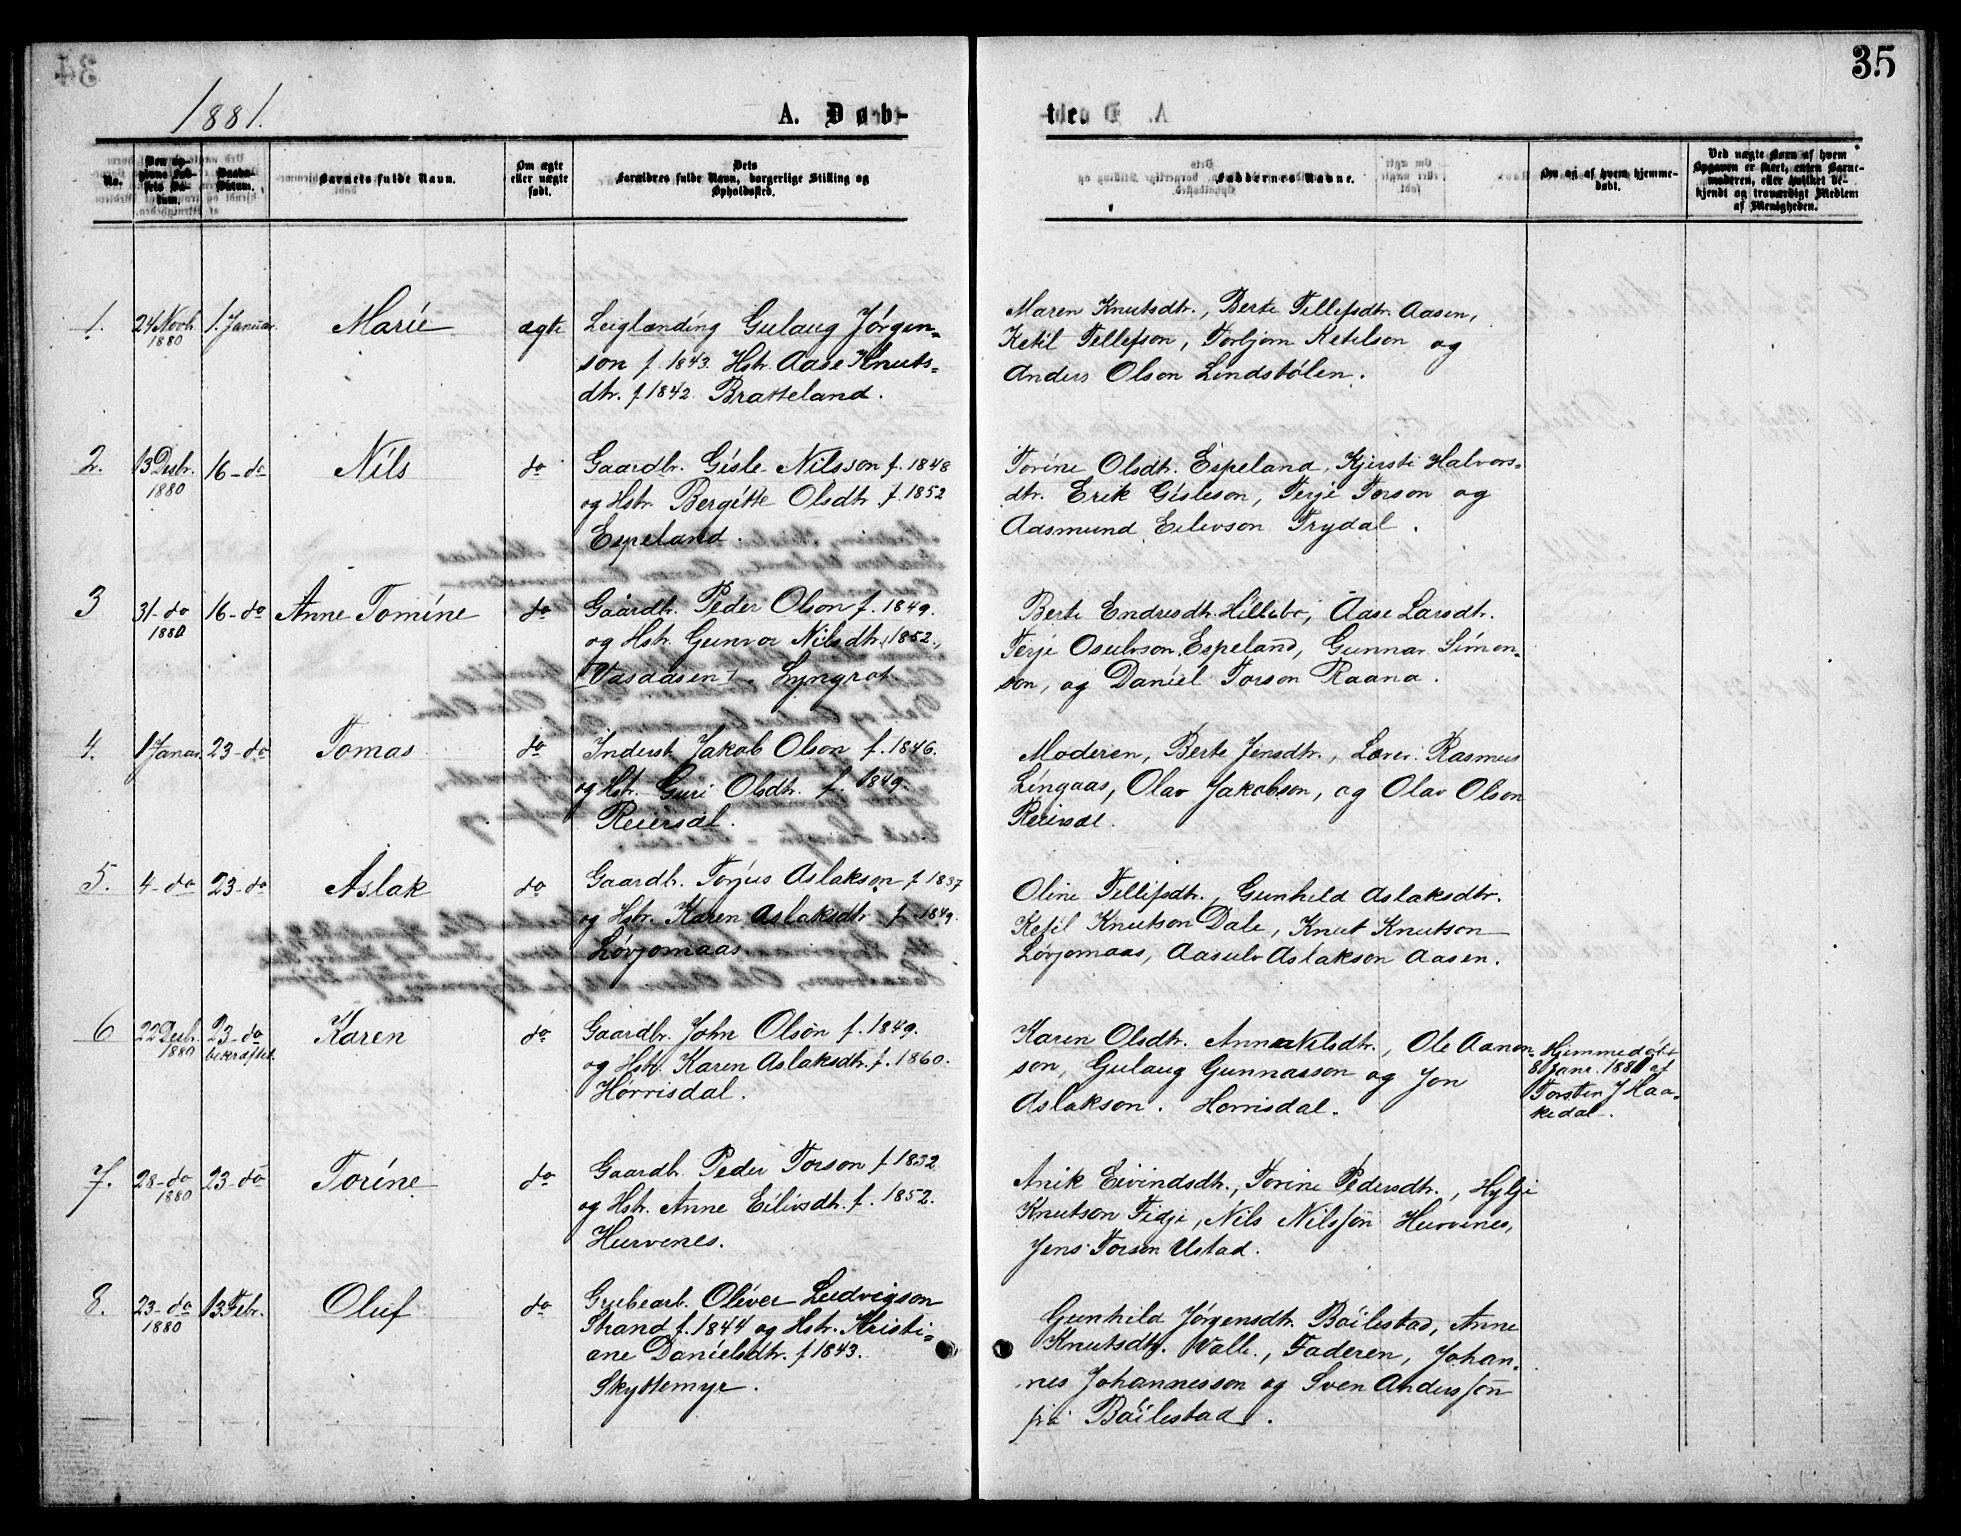 34
35
1881.
A. Døb-
te.
No.
Den op-
givne Fød-
sels Da-
tum.
Daabs-
Datum.
Barnets fulde Navn.
Om ægte
eller uægte
født.
Dets
Forældres fulde Navn, borgerlige Stilling og
Opholdssted.
Faddernes Navne.
Om og af hvem hjemme-
døbt.
Ved uægte Børn af hvem
Opgaven er skeet, enten Barne-
moderen, eller hvilket be-
kjendt og troværdigt Medlem
af Menigheden.
1. 24 Novb. 1880 1. Januar. Marie ægte
Leiglænding Gulaug Jørgen-
son f. 1843. Hstr. Aase Knuts-
dtr. f 1842 Bratteland.
Maren Knutsdtr., Berte Tellefsdtr. Aasen,
Ketil Tellefson, Torbjørn Ketilson og
Anders Olson Lindstølen.
2. 13 Desbr. 1880 16-do Nils do
Gaardbr. Gisle Nilsson f. 1848
og Hstr. Bergitte Olsdtr. f. 1852
Espeland.
Torine Olsdtr. Espeland, Kjersti Halvors-
dtr. Erik Gisleson, Terje Torson og
Aasmund Eilevson Trydal.
3 31-do 1880 16-do Anne Tomine do
Gaardb. Peder Olson f. 1849.
og Hstr. Gunvor Nilsdtr. 1852.,
Vasaasen Lyngrot
Berte Endresdtr. Hillebo, Aase Larsdtr.
Terje Osulvson, Espeland, Gunnar Simon-
son, og Daniel Torson Raana.
4. 1 Januar. 23-do Tomas do
Inderst. Jakob Olson f. 1846.
og Hstr. Guri Olsdtr. f. 1849.
Reiersdal.
Moderen, Berte Jensdtr., Lærer Rasmus
Lingaas, Olav Jakobson, og Olav Olson
Reiersdal.
5. 4-do 23-do Aslak do
Gaardb. Torjus Aslakson f 1837
og Hstr. Karen Aslaksdtr. f. 1849.
Løvjomaas.
Oline Tellefsdtr., Gunhild Aslaksdtr.
Ketil Knutson Dale, Knut Knutson
Løvjomaas, Aasulv Aslakson Aasen.
6 22 Desbr. 1880 23-do bekræftet. Karen do
Gaardbr. John Olson f. 1849.
og Hstr. Karen Aslaksdtr. f. 1860.
Hørrisdal.
Karen Olsdtr. Anna Nilsdtr., Ole Aanon-
son, Gulaug Gunnarson og Jon
Aslakson. Horrisdal.
Hjemmedøbt
8 Janr. 1881 af
Torsten J Haa-
kedal.
7. 28-do 1880 23-do Torine do
Gaardb. Peder Torson f 1832
og Hstr. Anne Eilivsdtr. f. 1852.
Hurvenes.
Anik Eivindsdtr., Torine Pedersdtr., Hylje
Knutson Fidje, Nils Nilsson Hurvenes,
Jens Torson Ustad.
8. 23-do 1880 13 Febr. Oluf do
Grubearb. Oliver Ludvigson
Strand f. 1844 og Hstr. Kristi-
ane Danielsdtr. f 1843.
Skyttemyr.
Gunhild Jørgensdtr. Båilestad, Anne
Knutsdtr. Valle., Faderen, Johan-
nes Johannesson og Sven Andersson
fra Båilestad.